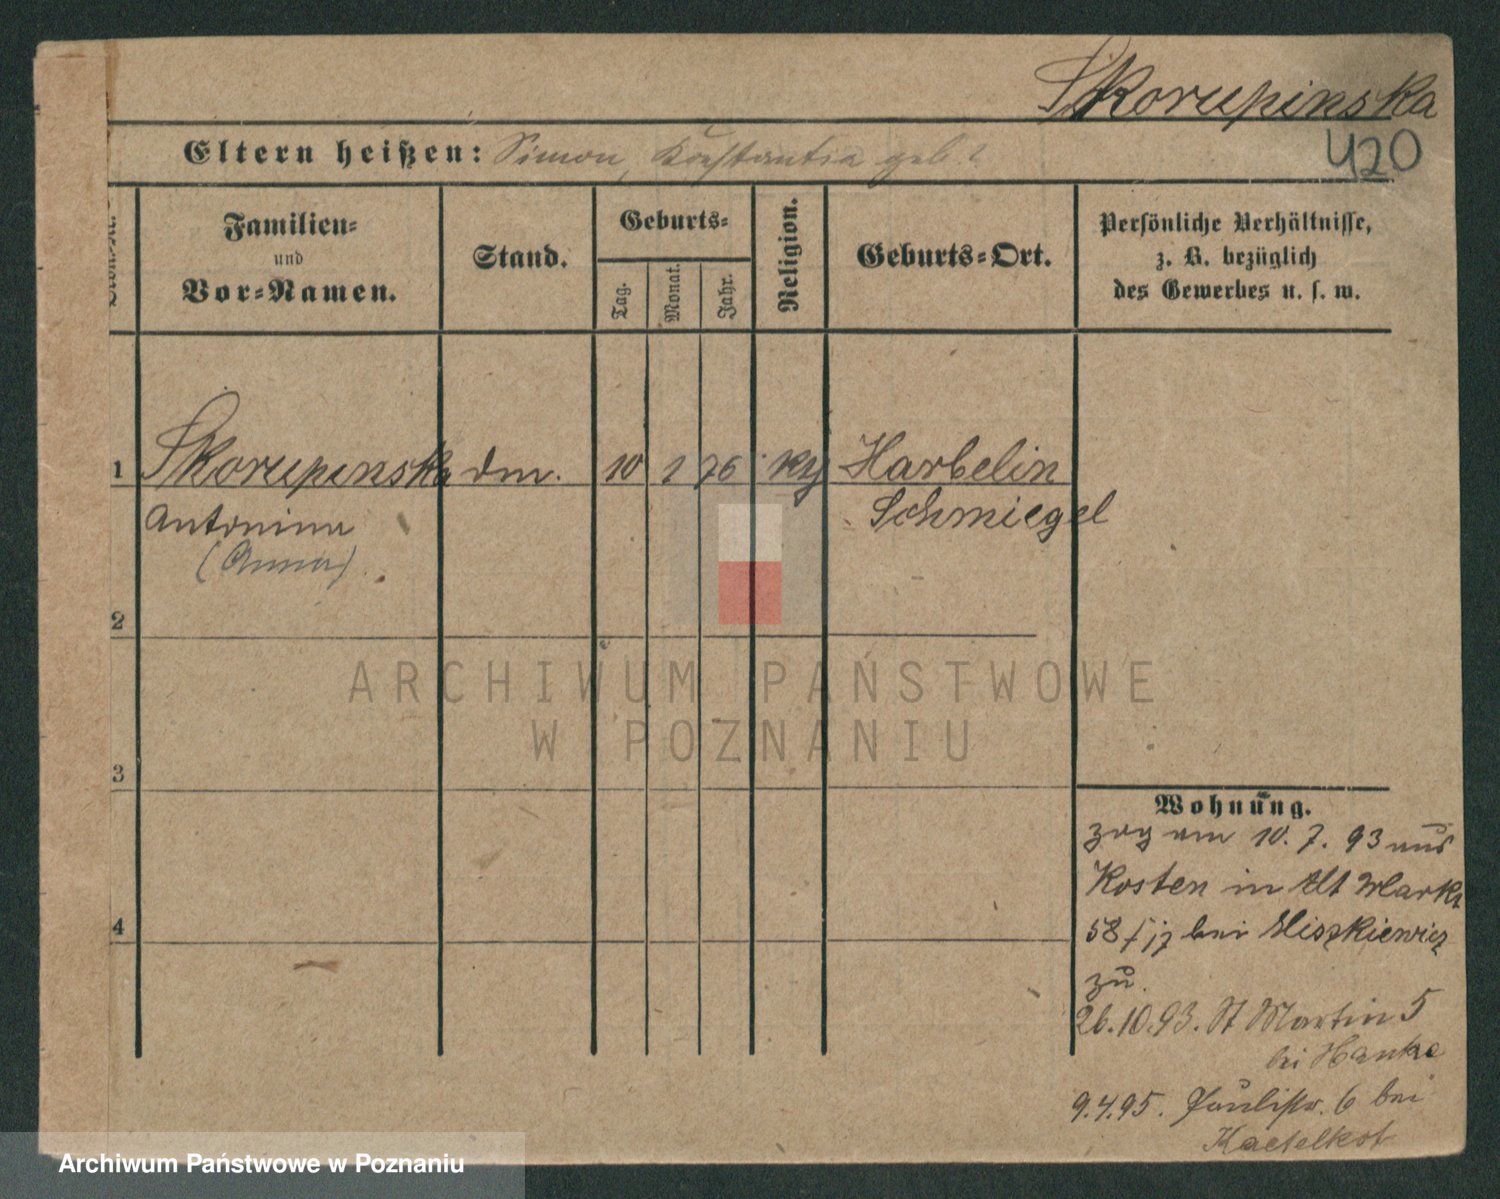 Skorupinska
420
Eltern heißen: Simon, Konstantia geb ?
Familien-
und
Vor-Namen.
Stand.
Geburts-
Tag.
Monat.
Jahr.
Religion.
Geburts-Ort.
Persönliche Verhältnisse,
z. B. bezüglich
des Gewerbes u. s. w.
1 Skorupinska dm. 10 1 76 Harbelin
Antonina Schmiegel
(Anna)
2
3
4
Wohnung.
zog am 10. 7. 93 aus
Kosten in Alt Markt
58 bei Miszkiewicz
zu.
26.10.93. St Martin 5
bei Hanke
9.4.95. Paulistr. 6 bei
ARCHIWUM PAŃSTWOWE
W POZNANIU
Archiwum Państwowe w Poznaniu